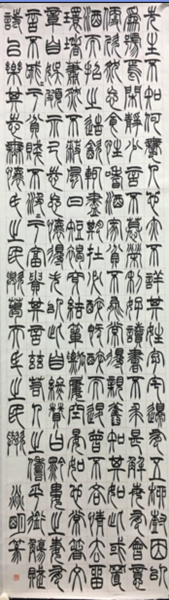 先生不知何許人也亦不詳其姓字宅邊有五柳樹因以
為號焉閑靜少言不慕榮利好讀書不求甚解每有會意
便欣然忘食性嗜酒家貧不能常得親舊知其如此或置
酒而招之造飲輒盡期在必醉既醉而退曾不吝情去留
環堵蕭然不蔽風日短褐穿結簞瓢屢空晏如也常著文
章自娛頗示己志忘懷得失以此自終贊曰黔婁之妻有
言不戚戚于貧賤不汲汲于富貴其言茲若人之儔乎銜觴賦
詩以樂其志無懷氏之民歟葛天氏之民歟
篆